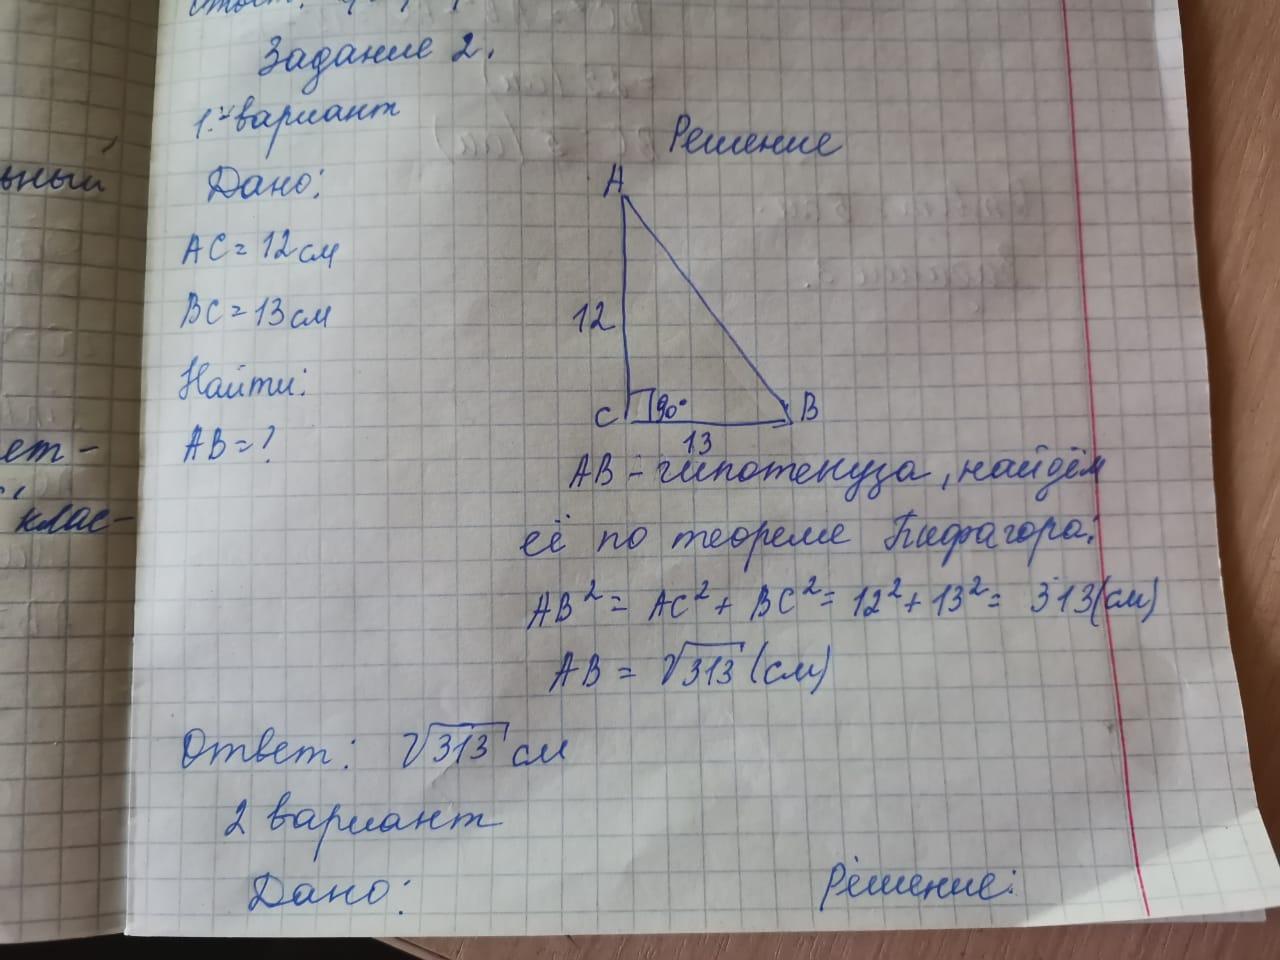 Задание 2.
1.) вариант
Решение
Дано:
A
AC = 12 см
BC = 13 см
12
Найти:
C 90° B
AB = ?
13
AB - гипотенуза, найдём
её по теореме Пифагора:
AB² = AC² + BC² = 12² + 13² = 313(см)
AB = √313 (см)
Ответ: √313 см
2 вариант
Дано:
Решение:
ьный
ет-
клас-